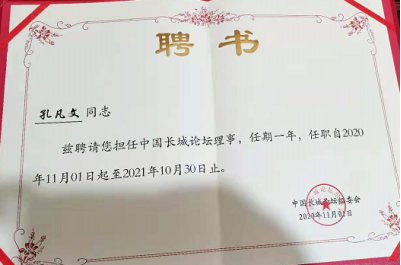 聘书
孔凡文 同志
兹聘请您担任中国长城论坛理事，任期一年，任职自2020
年11月01日起至2021年10月30日止。
中国长城论坛组委会
2020年11月01日